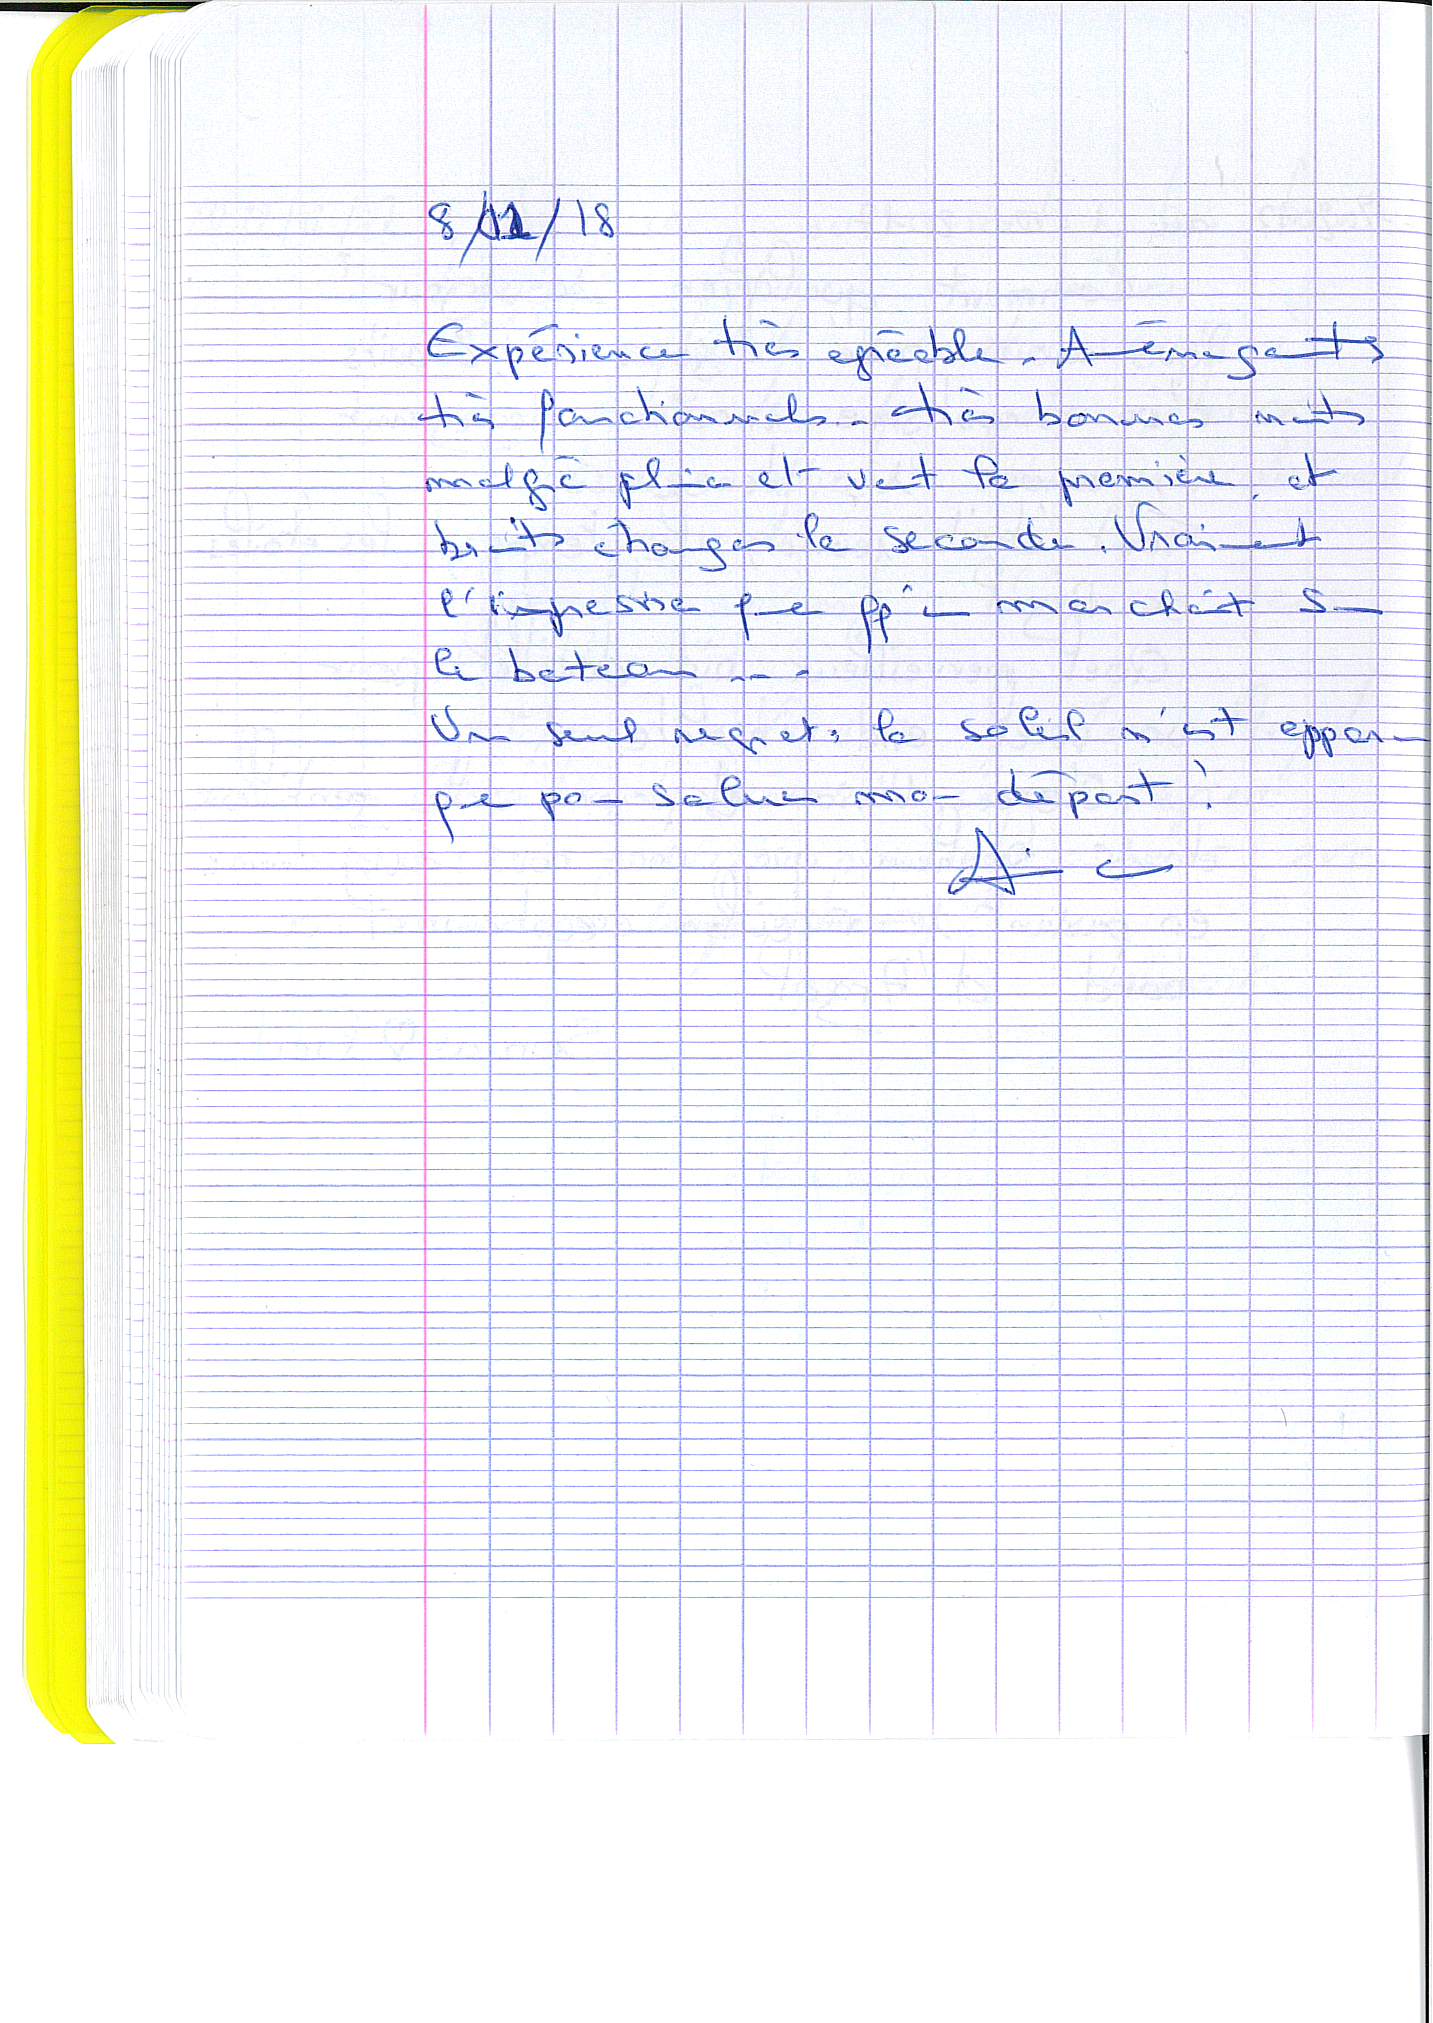 8/12/18
Expérience très agréable. Aménagements
très fonctionnels. très bonnes nuits
malgré pluie et vent la première, et
bruits étranges la seconde. Vraiment
l'impression que qq'un marchait sur
le bateau ...
Un seul regret: le soleil n'est apparu
que pour saluer mon départ !